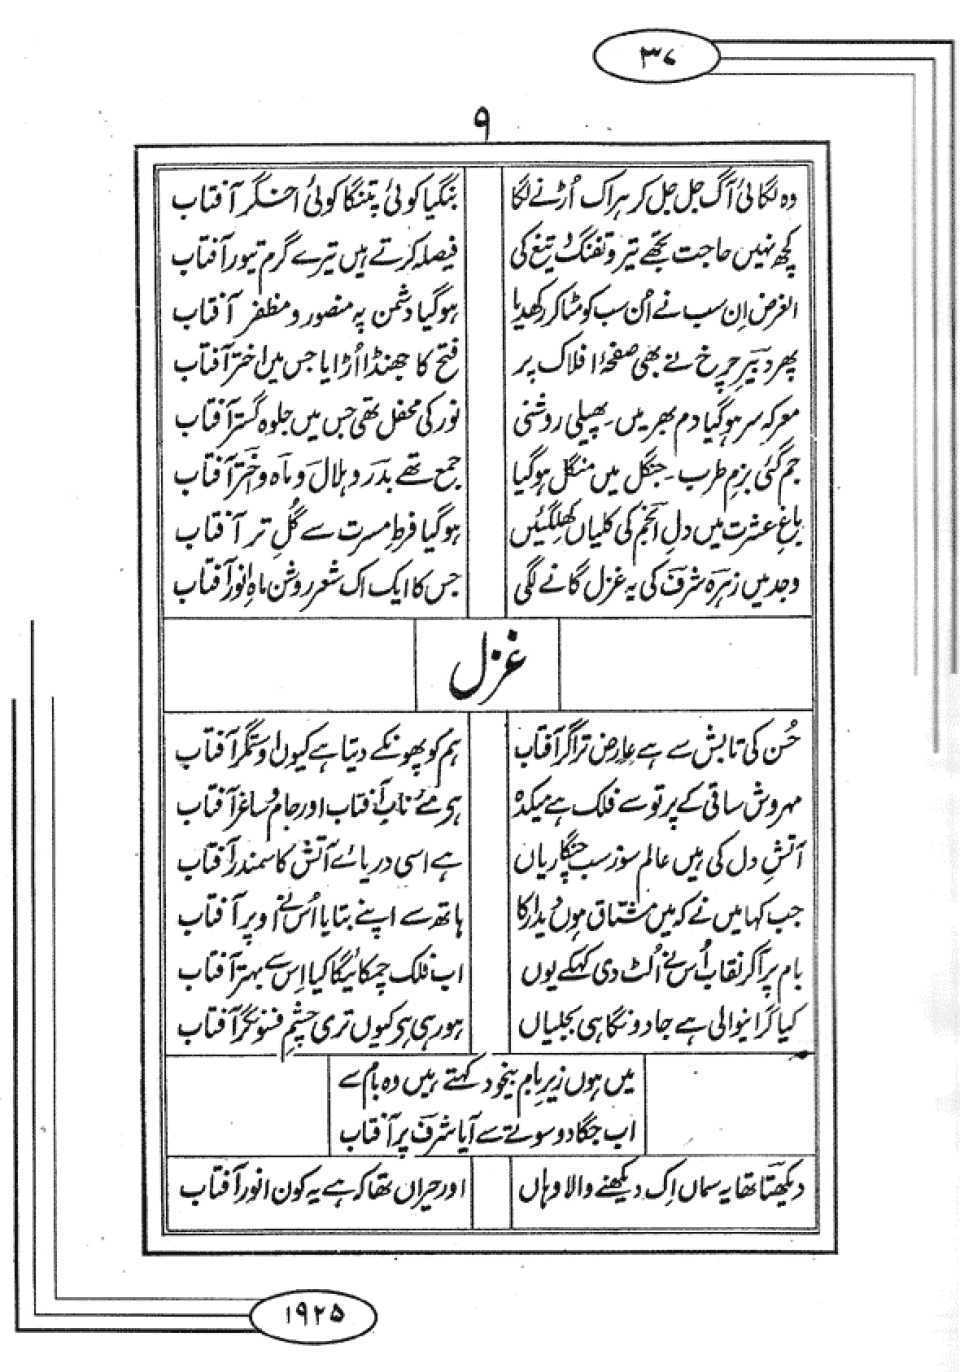 ۳۷
۹
وہ لگائی آگ جل جل کر ہراک اُڑنے لگا
بنگیا کوئی پتنگا کوئی اخگر آفتاب
کچھ نہیں حاجت تجھے تیر و تفنگ و تیغ کی
فیصلہ کرتے ہیں تیرے گرم تیور آفتاب
الغرض اِن سب نے اُن سب کو مٹا کر رکھدیا
ہوگیا دشمن پہ منصور و مظفر آفتاب
پھر دبیرِ چرخ نے بھی صفحۂ افلاک پر
فتح کا جھنڈا اُڑایا جس میں اختر آفتاب
معرکہ سر ہوگیا دم بھر میں۔ پھیلی روشنی
نور کی محفل تھی جس میں جلوہ گستر آفتاب
جم گئی بزمِ طرب۔ جنگل میں منگل ہوگیا
جمع تھے بدر و ہلال و ماہ و اختر آفتاب
باغِ عشرت میں دلِ انجم کی کلیاں کھلگئیں
ہوگیا فرطِ مسرت سے گُلِ تر آفتاب
وجد میں زہرہ شرفؔ کی یہ غزل گانے لگی
جس کا ایک اک شعر روشن ماہِ انور آفتاب
غزل
حُسن کی تابش سے ہے عارض ترا گر آفتاب
ہم کو پھونکے دیتا ہے کیوں او ستمگر آفتاب
مہروش ساقی کے پرتو سے فلک ہے میکدہ
ہی مئے ناب آفتاب اور جام و ساغر آفتاب
آتشِ دل کی ہیں عالم سوز سب چنگاریاں
ہے اسی دریائے آتش کا سمندر آفتاب
جب کہا میں نے کہ میں مشتاق ہوں دیدار کا
ہاتھ سے اپنے بتایا اُس نے اوپر آفتاب
بام پر آکر نقاب اُس نے اُلٹ دی کہکے یوں
اب فلک چمکائیگا کیا اِس سے بہتر آفتاب
کیا گرانیوالی ہے جادو نگاہی بجلیاں
ہو رہی ہی کیوں تری چشمِ فسونگر آفتاب
میں ہوں زیرِ بام بیخود کہتے ہیں وہ بام سے
اب جگا دو سوتے سے آیا شرفؔ پر آفتاب
دیکھتا تھا یہ سماں اِک دیکھنے والا وہاں
اور حیراں تھا کہ ہے یہ کون انور آفتاب
۱۹۲۵